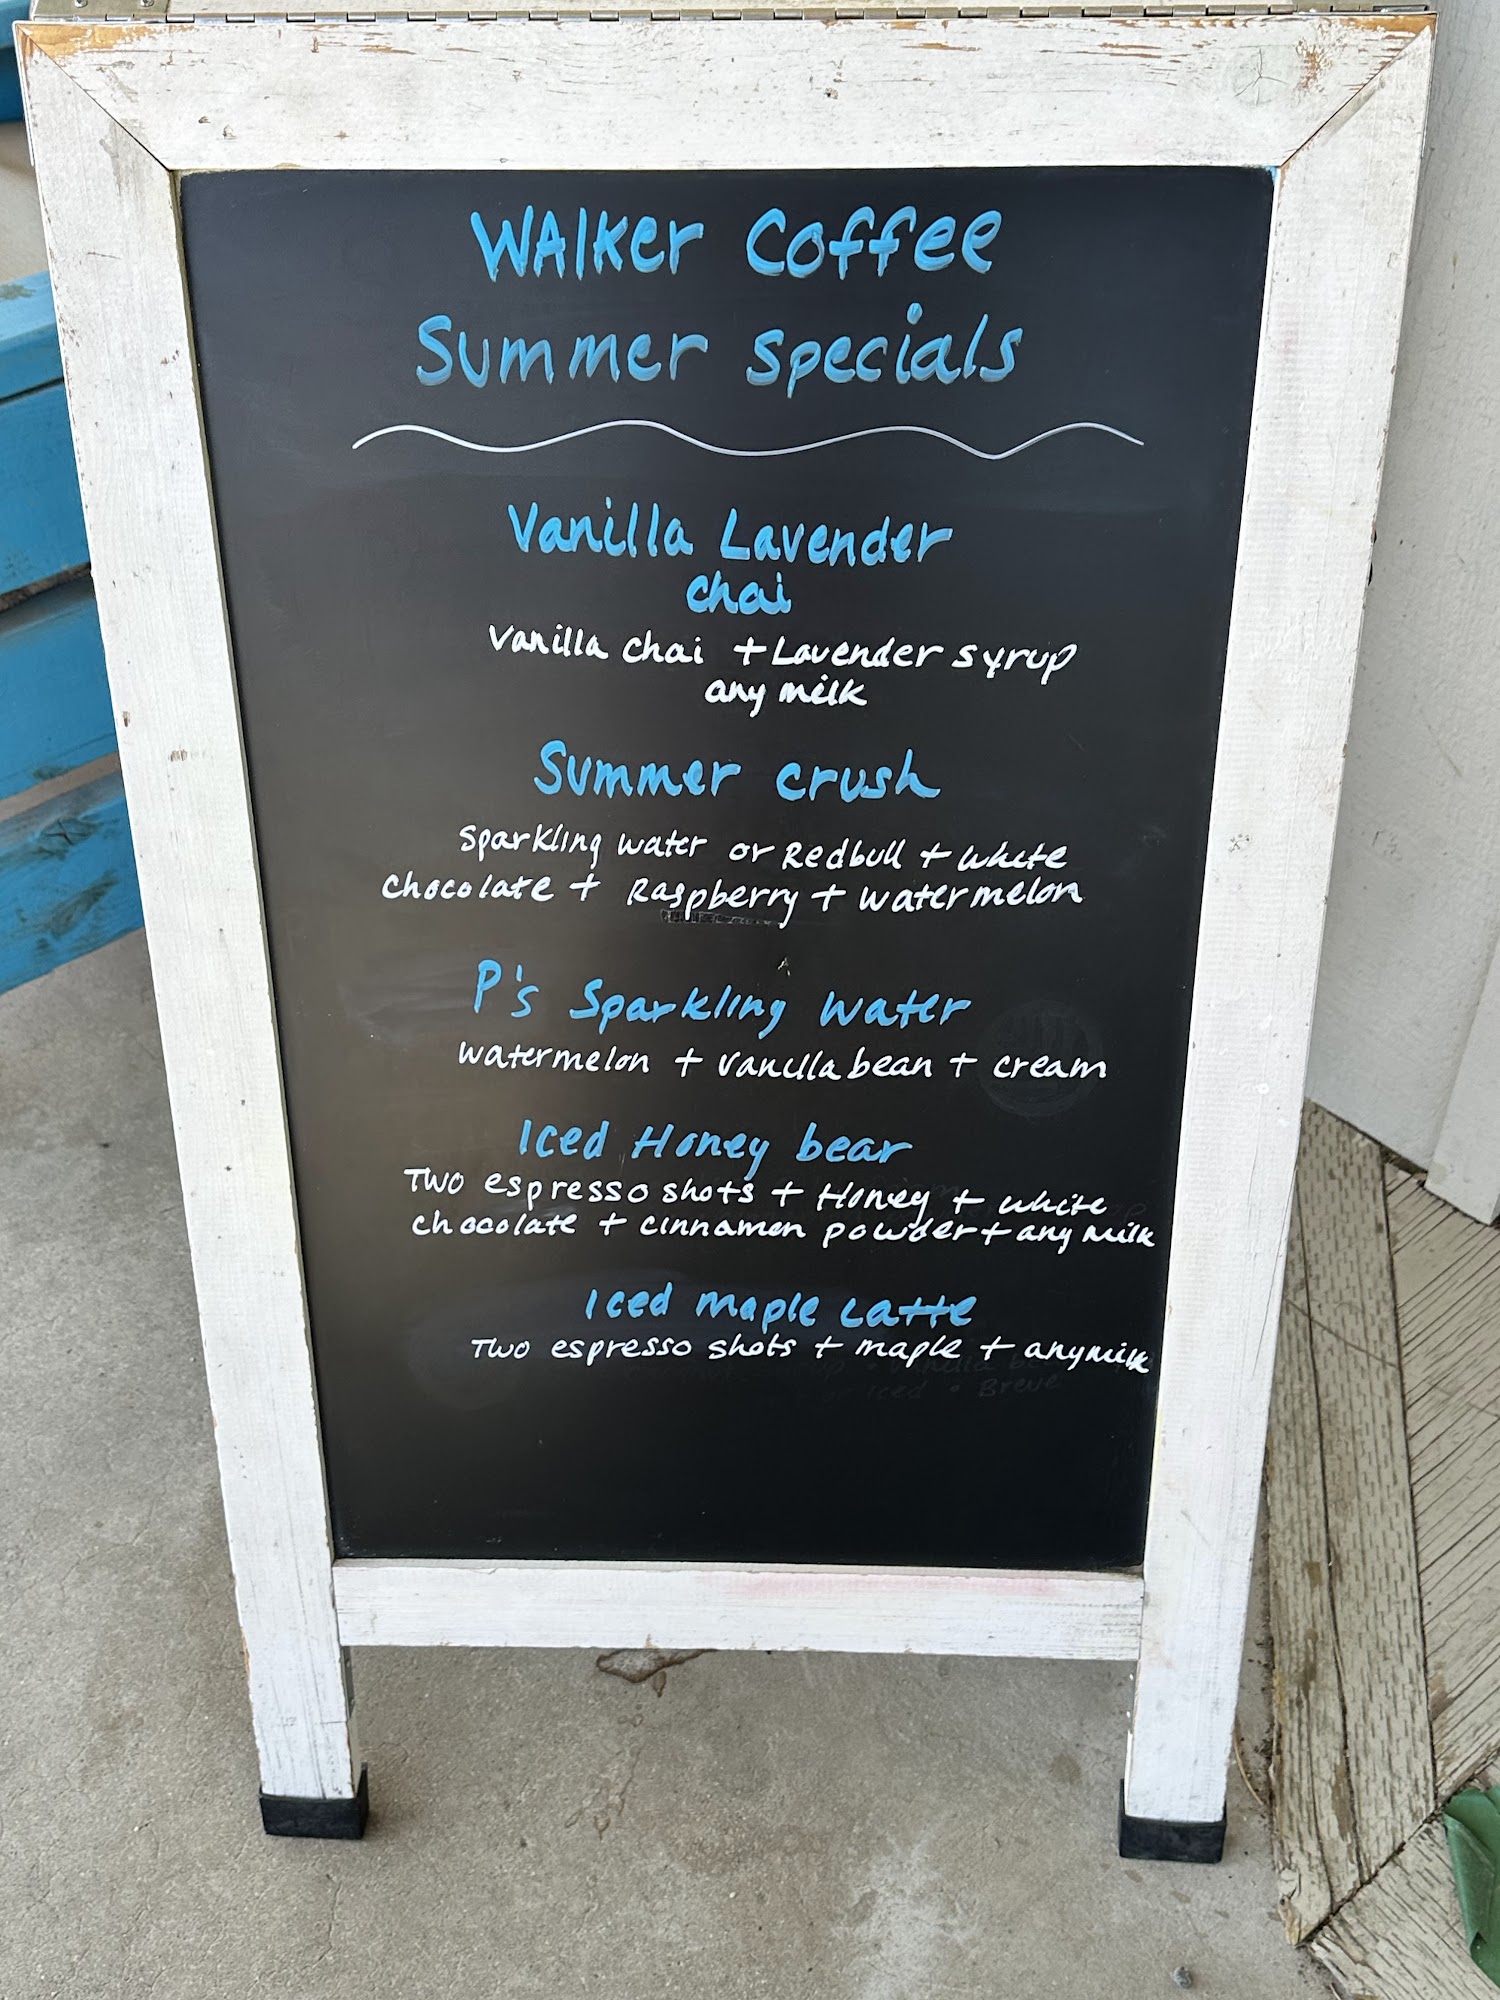 WAlker Coffee
Summer specials
Vanilla Lavender
chai
Vanilla chai + Lavender syrup
any milk
Summer crush
Sparkling water or Redbull + white
chocolate + Raspberry + watermelon
P's Sparkling water
watermelon + vanilla bean + cream
Iced Honey bear
Two espresso shots + Honey + white
chocolate + cinnamon powder + any milk
Iced maple Latte
Two espresso shots + maple + any milk
or Iced • Breve